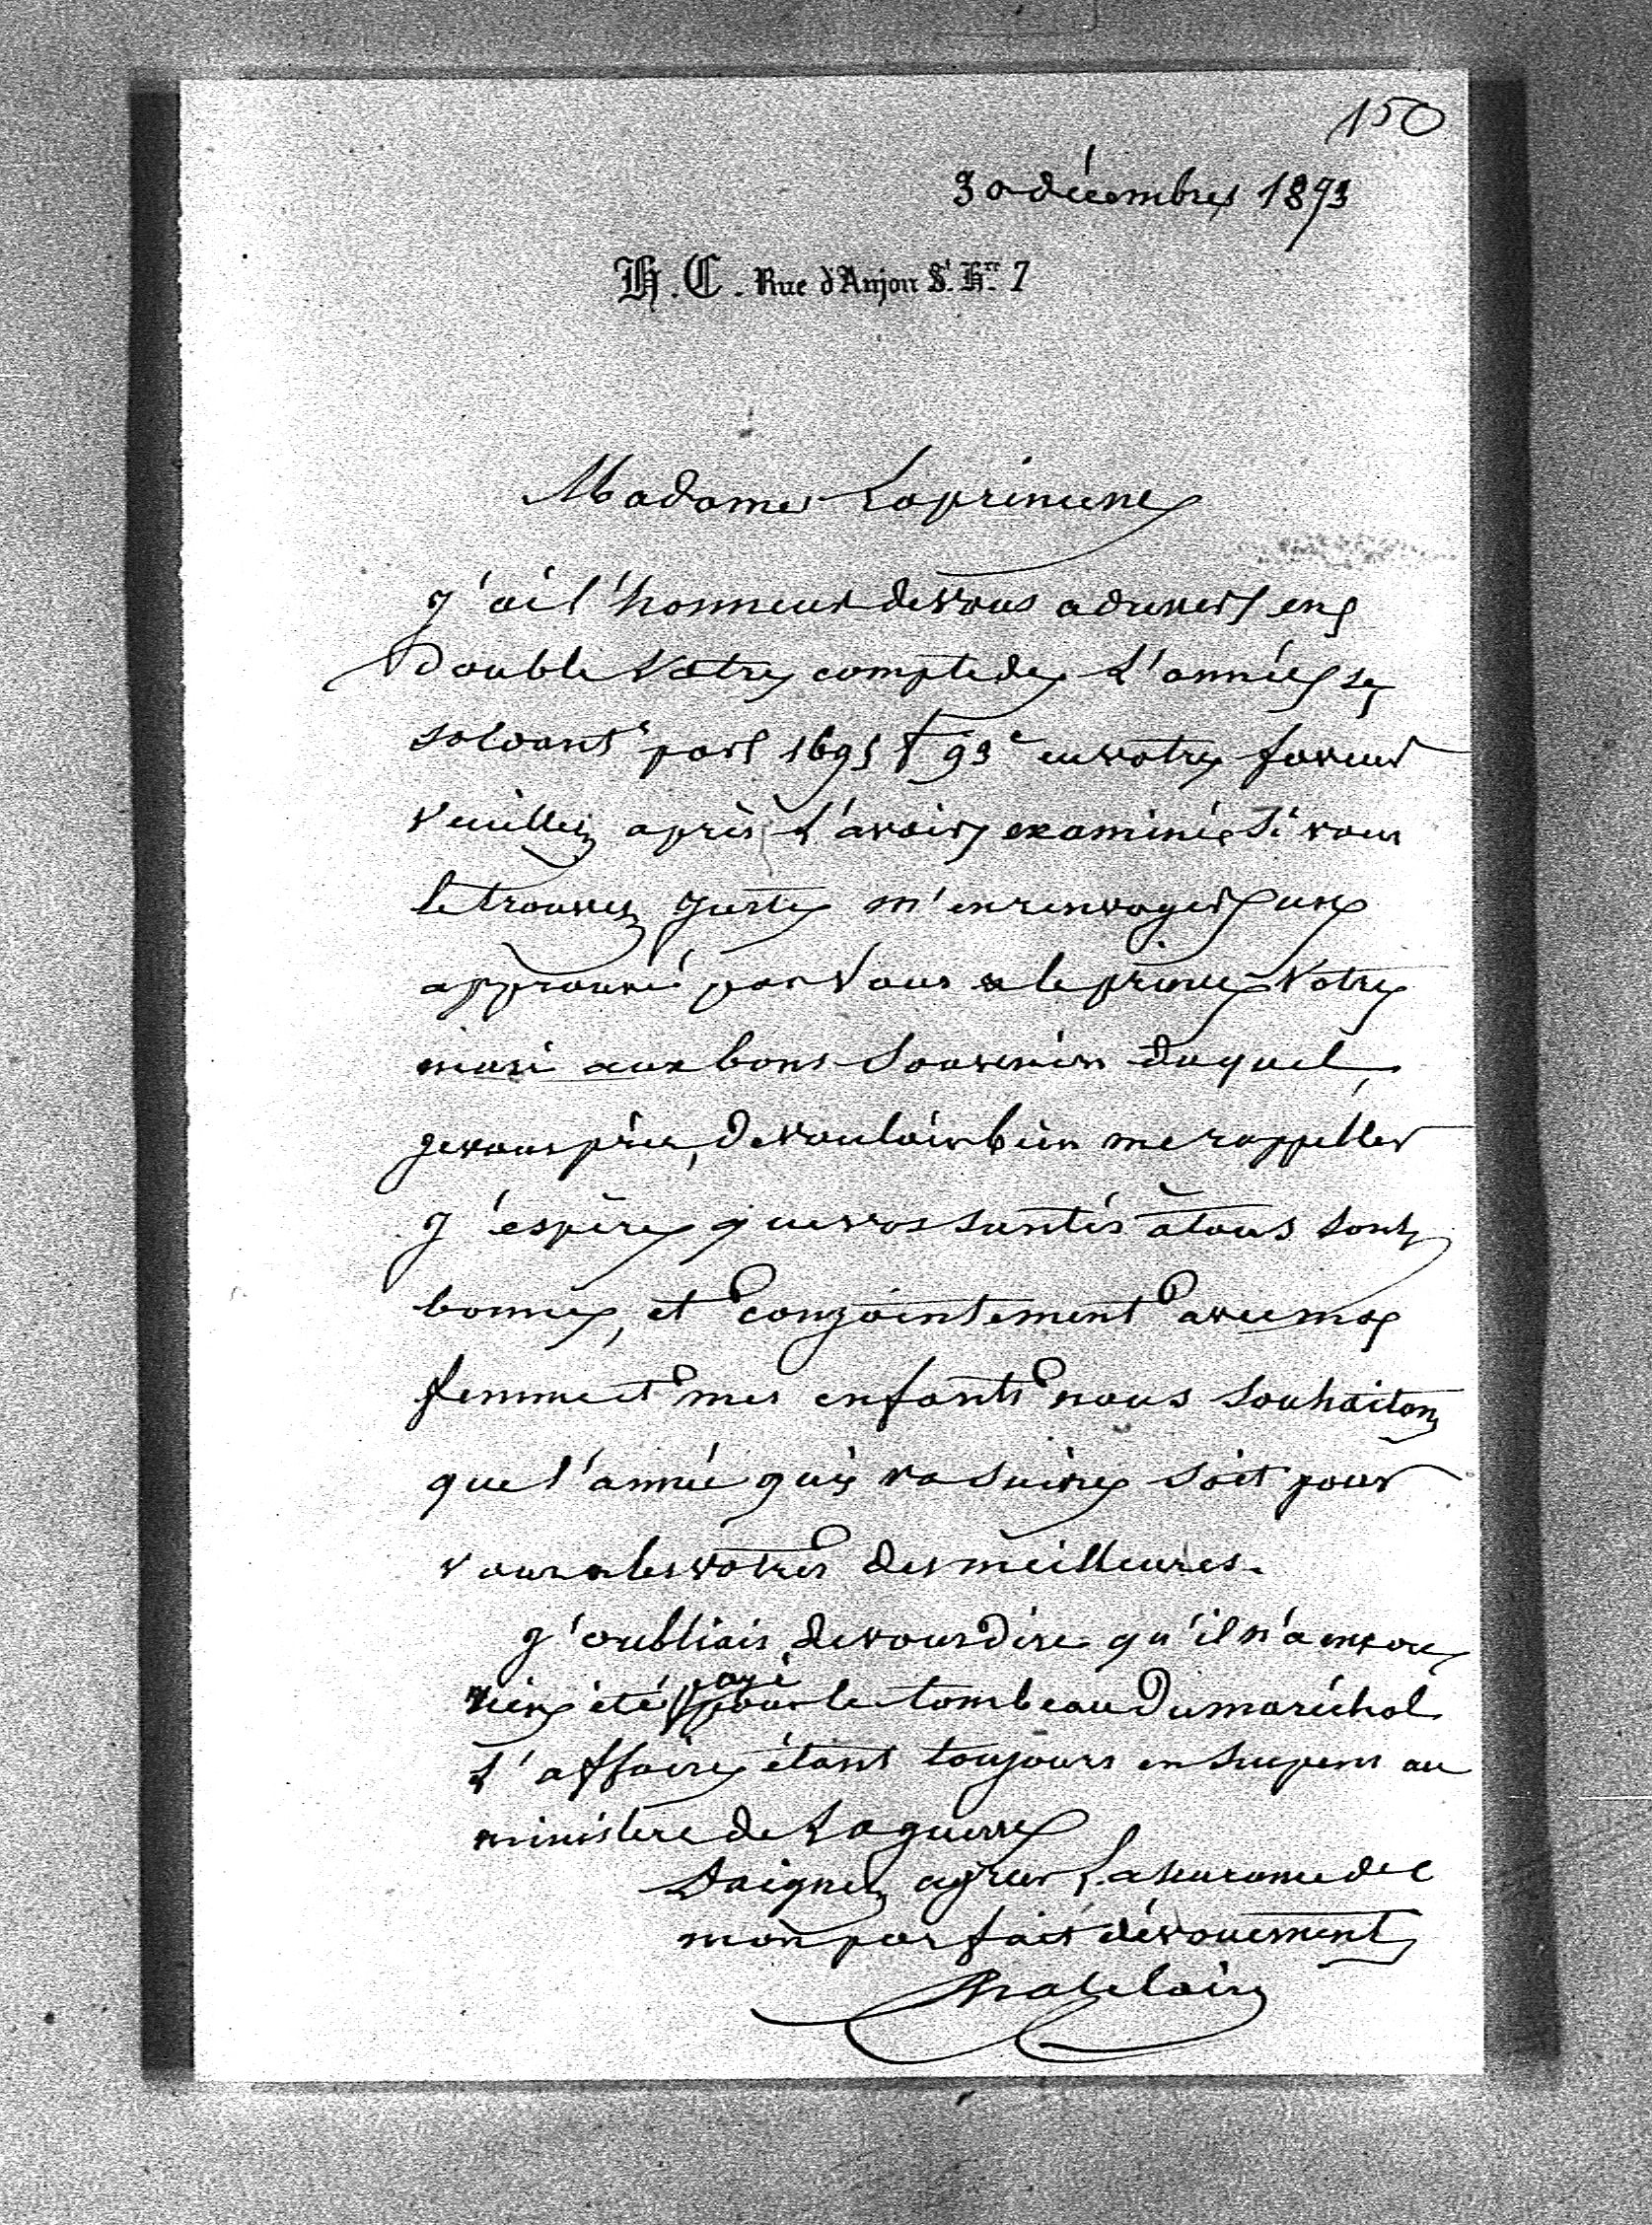 150
30 décembre 1873
H. C. Rue d'Anjou St. Hré. 7
Madame La princesse
J'ai l'honneur de vous adresser en
Double Votre compte de L'année se
soldant par 1695 f 93 c en votre faveur
veuillez après L'avoir examiné Si vous
le trouvez juste m'en renvoyer un
approuvé par Vous & le prince Votre
mari aux bons Souvenirs duquel
je vous prie, de vouloir bien me rappeller
J'espère que vos santés à tous sont
bonnes, et conjointement avec ma
femme et mes enfants nous Souhaitons
que l'année qui va suivre soit pour
vous & les votres des meilleures.
J'oubliais de vous Dire qu'il n'a encore
rien été payé pour le tombeau Du maréchal
L'affaire étant toujours en suspens au
ministere de La guerre
Daignez agréer L'assurance de
mon parfait dévouement
Chatelain